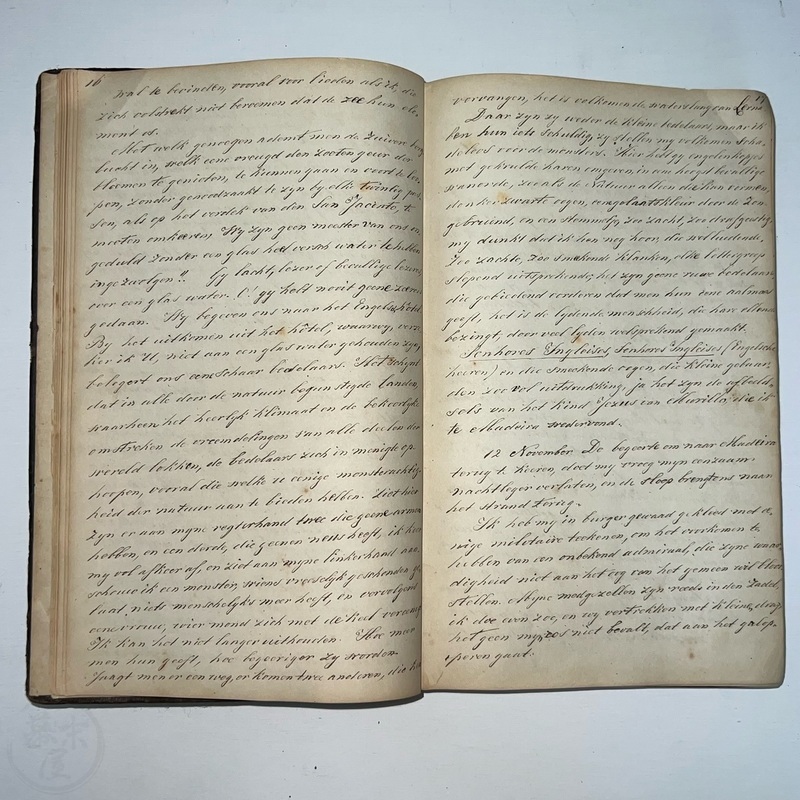 16
wal te bevinden, vooral voor lieden als ik, die
zich volstrekt niet beroemen dat de zee hun ele-
ment is.
Met welk genoegen ademt men de zuivere berg
lucht in, welk eene vreugd den zoeten geur der
bloemen te genieten, te kunnen gaan en voort te loo-
pen, zonder genoodzaakt te zyn by elke twintig pas-
sen, als op het verdek van den San Jacinto, te
moeten omkeeren, Wy zyn geen meester van ons on-
geduld zonder een glas heel versch water te hebben
ingezwolgen!! Gy lacht, lezer of bevallige lezeres,
over een glas water. O! gy hebt nooit geene zeereis
gedaan. Wy begeven ons naar het Engelsch hôtel
By het uitkomen uit het hôtel, waarvoy, verze-
ker ik U, niet aan een glas water gehouden zyn,
belegert ons eene schaar bedelaars. Het schynt
dat in alle door de natuur begunstigde landen,
waarheen het heerlyk klimaat en de bekoorlyke
omstreken de vreemdelingen van alle deelen der
wereld lokken, de bedelaars zich in menigte op-
hoopen, vooral die welke u eenige monsterachtig-
heid der natuur aan te bieden hebben. Ziet hier
zyn er aan myne regterhand twee die geene armen
hebben, en een derde, die geenen neus heeft, ik keer
my vol afkeer af, en ziet aan myne linkerhand aan-
schouw ik een monster, wiens vreeselyk geschonden ge-
laat, niets menschelyks meer heeft, en vervolgens
eene vrouw, wier mond zich met de keel vereenigt
Ik kan het niet langer uithouden. Hoe meer
men hun geeft, hoe begeeriger zy worden.
Jaagt men er een weg, er komen twee anderen, die hem
17
vervangen, het is volkomen de waterslang van Lerna
Daar zyn zy weder de kleine bedelaars, maar ik
ben hun iets schuldig, zy stellen my volkomen scha-
deloos voor de monsters. Hier het gy engelenkopjes
met gekrulde haren omgeven, in eene hoogst bevallige
wanorde, zoo als de Natuur alleen die kan vormen,
donker zwarte oogen, eene gelaatskleur door de zon
gebruind, en een stemmetje, zoo zacht, zoo droefgeestig
my dunkt dat ik hen nog hoor, die welluidende,
zoo zachte, zoo smekende klanken, elke lettergreep
slepend uitsprekende; het zyn geene ruwe bedelaars
die gebiedend vorderen dat men hun eene aalmoes
geeft, het is de lydende menschheid, die hare ellende
bezingt, door veel lyden welsprekend gemaakt.
Senhores Ingleises, Senhores Ingleises (Engelsche
heeren) en die smeekende oogen, die kleine gebaar-
den zoo vol uitdrukking, ja het zyn de afbeeld-
sels van het kind Jezus van Murillo, die ik
te Madeira wedervond.
12 November. De begeerte om naar Madeira
terug te keeren, doet my vroeg myn eenzaam
nachtleger verlaten, en de sloep brengt ons naar
het strand terug.
Ik heb my in burger gewaad gekleed met ee-
nige militaire teekenen, om het voorkomen te
hebben van een onbekend admiraal, die zyne waar-
digheid niet aan het oog van het gemeen wil bloot
stellen. Myne medgezellen zyn reeds in den zadel,
ik doe even zoo, en wy vertrekken met kleine drap
hetgeen myn ros niet bevalt, dat aan het galop-
peren gaat.